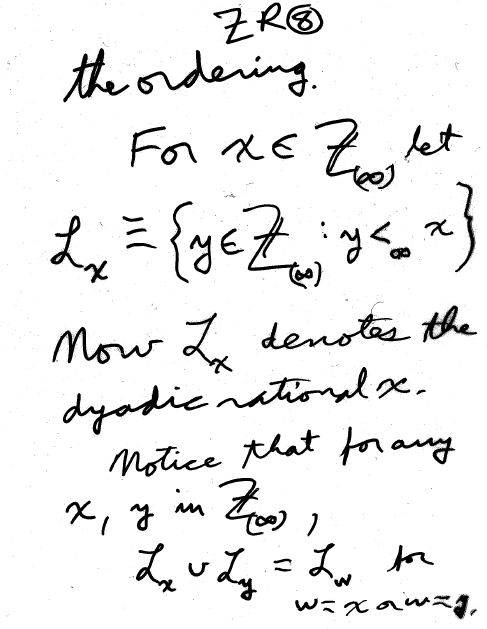 ZR⑧
the ordering.
For x ∈ ℤ₍∞₎ let
ℒₓ ≡ {y ∈ ℤ₍∞₎ : y <∞ x}
Now ℒₓ denotes the
dyadic rational x.
Notice that for any
x, y in ℤ₍∞₎,
ℒₓ ∪ ℒy = ℒw for
w = x or w = y.